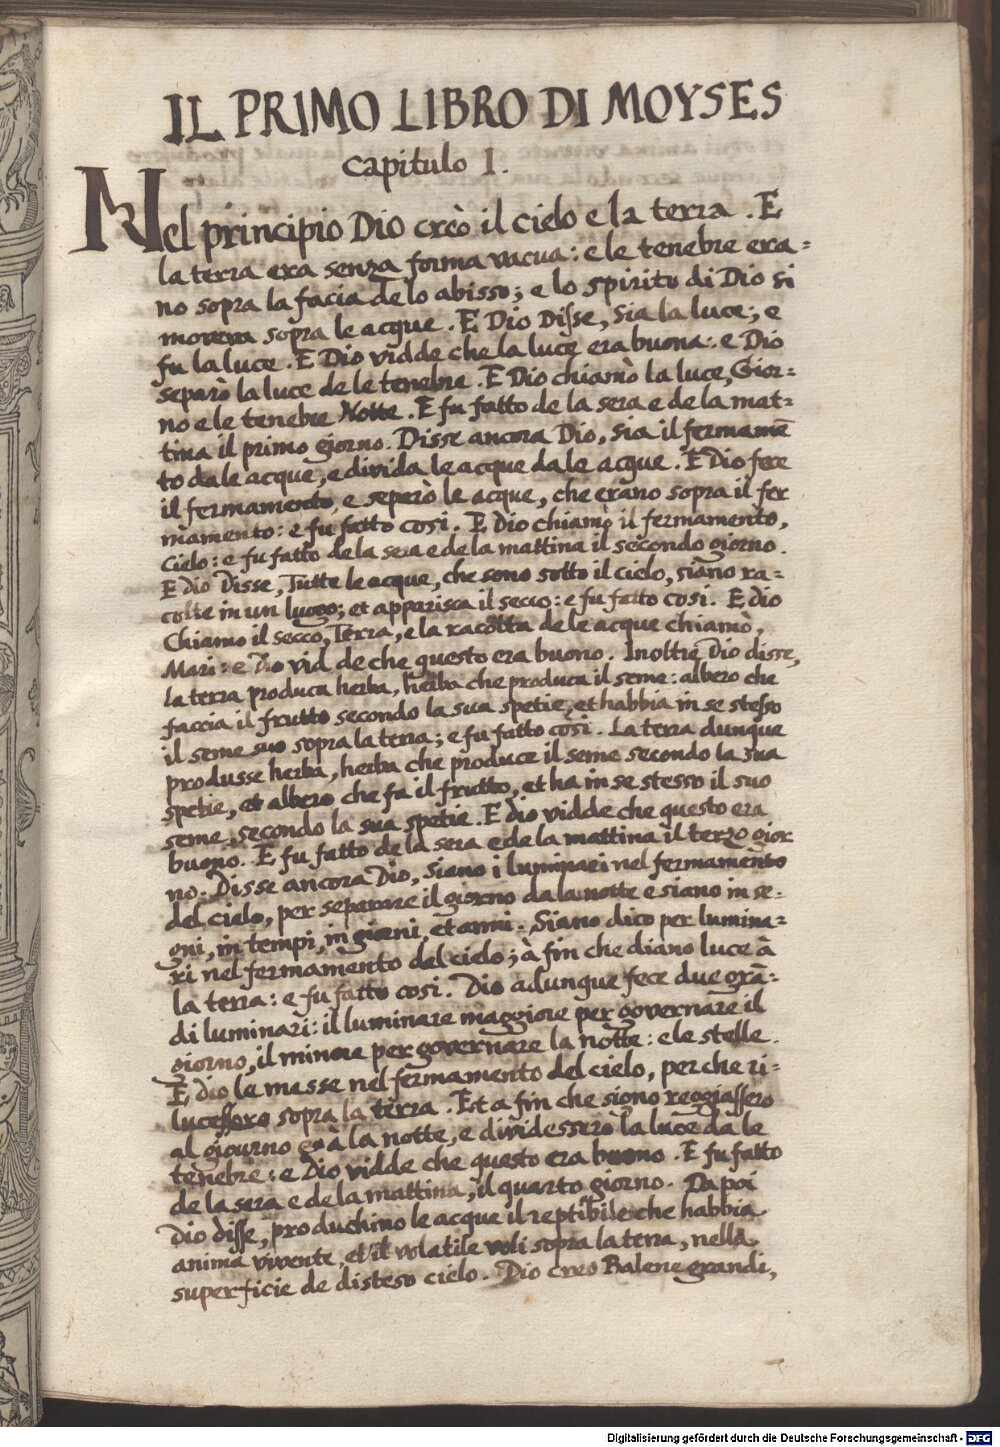 IL PRIMO LIBRO DI MOYSES
Capitulo I.
Nel principio Dio creò il cielo e la terra. E
la terra era senza forma vacua: e le tenebre era=
no sopra la facia de lo abisso; e lo spirito di Dio si
moveva sopra le acque. E Dio Disse, Sia la luce; e
fu la luce. E Dio vidde che la luce era buona: e Dio
separò la luce de le tenebre. E Dio chiamò la luce, Gior=
no e le tenebre Notte. E fu fatto de la sera e de la mat=
tina il primo giorno. Disse ancora Dio, Sia il fermamē
to da le acque, e divida le acque da le acque. E Dio fece
il fermamento, e separò le acque, che erano sopra il fer
mamento: e fu fatto cosi. E Dio chiamò il fermamento,
Cielo: e fu fatto de la sera e de la mattina il secondo giorno.
E dio Disse, Tutte le acque, che sono sotto il cielo, siano ra=
colte in un luogo; et apparisca il secco: e fu fatto cosi. E dio
Chiamo il secco, Terra, e la racolta de le acque chiamò,
Mari: e Dio vid de che questo era buono. Inoltre Dio disse,
la terra produca herba, herba che produca il seme: albero che
faccia il frutto secondo la sua spetie, et habbia in se stesso
il seme suo sopra la terra; e fu fatto cosi. La terra dunque
produsse herba, herba che produce il seme secondo la sua
spetie, et albero che fa il frutto, et ha in se stesso il suo
seme, secondo la sua spetie. E dio vidde che questo era
buono. E fu fatto de la sera e de la mattina il terzo gior
no. Disse ancora Dio, siano i luminari nel fermamento
del cielo, per separare il giorno da la notte e siano in se=
gni, in tempi, in giorni, et anni. Siano dico per lumina=
ri nel fermamento del cielo; à fin che diano luce à
la terra: e fu fatto cosi. Dio adunque fece due grā=
di luminari: il luminare maggiore per governare il
giorno, il minore per governare la notte: e le stelle.
E dio le masse nel fermamento del cielo, perche ri=
lucessero sopra la terra. Et a fin che signo reggiassero
al giourno et à la notte, e dividessero la luce da le
tenebre: e Dio vidde che questo era buono. E fu fatto
de la sera e de la mattina, il quarto giorno. Da poi
Dio disse, produchino le acque il reptibile che habbia
anima vivente, et il volatile voli sopra la terra, nella
superficie de disteso cielo. Dio creo Balene grandi,
Digitalisierung gefördert durch die Deutsche Forschungsgemeinschaft - DFG